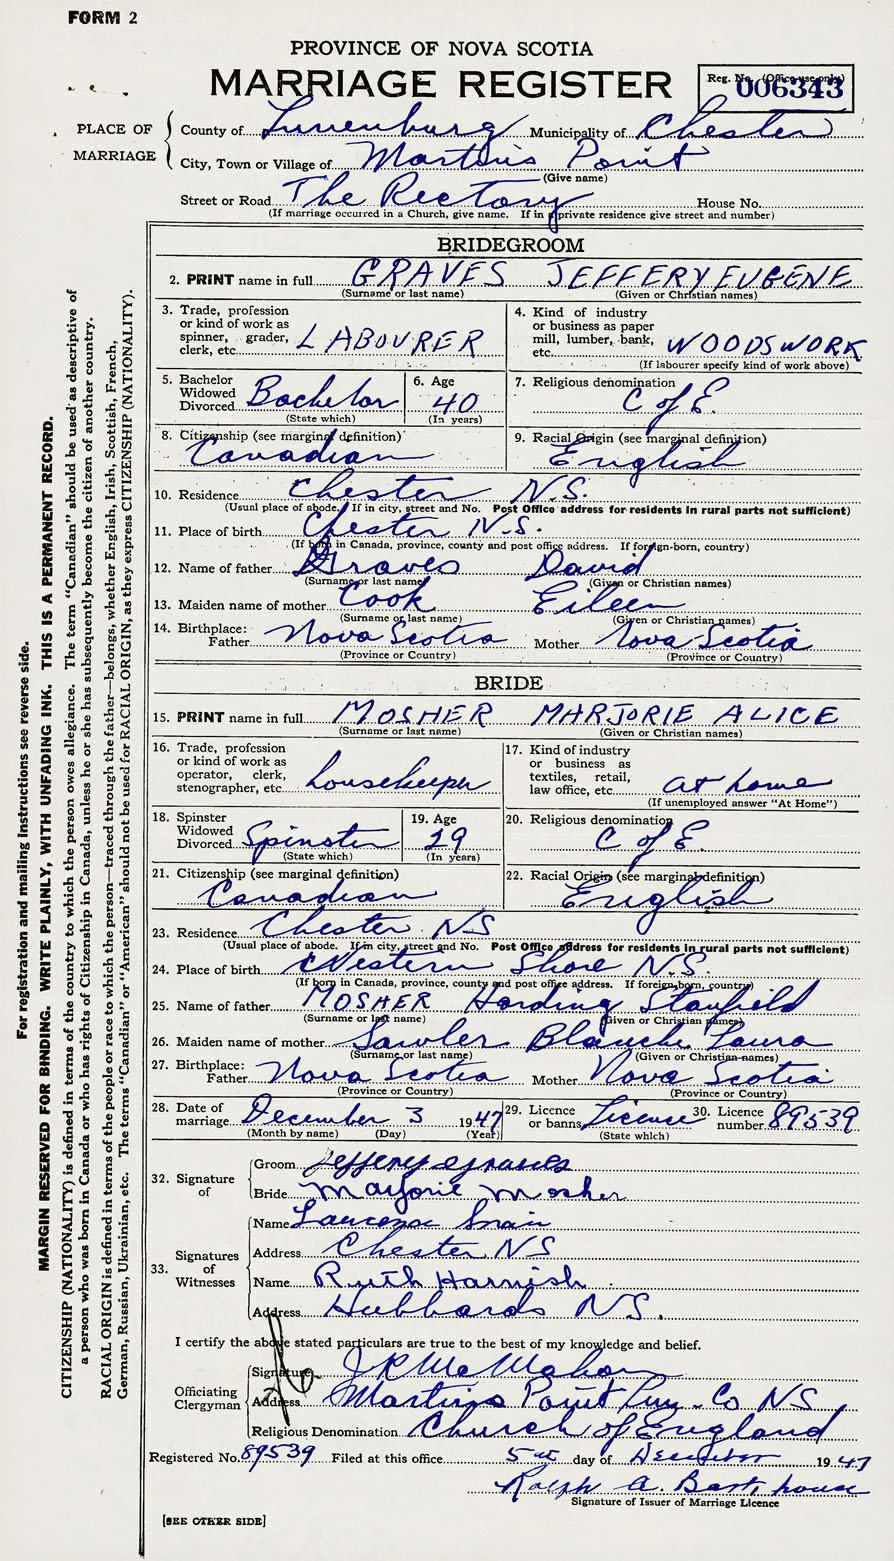 FORM 2
PROVINCE OF NOVA SCOTIA
MARRIAGE REGISTER
Reg. No. (Office use only)
006343
PLACE OF MARRIAGE
County of Lunenburg Municipality of Chester
City, Town or Village of Martins Point
(Give name)
Street or Road The Rectory House No.
(If marriage occurred in a Church, give name. If in a private residence give street and number)
BRIDEGROOM
2. PRINT name in full GRAVES JEFFERY EUGENE
(Surname or last name) (Given or Christian names)
3. Trade, profession or kind of work as spinner, grader, clerk, etc. LABOURER
4. Kind of industry or business as paper mill, lumber, bank, etc. WOODSWORK
(If labourer specify kind of work above)
5. Bachelor Widowed Divorced Bachelor
(State which)
6. Age 40
(In years)
7. Religious denomination C of E.
8. Citizenship (see marginal definition) Canadian
9. Racial Origin (see marginal definition) English
10. Residence Chester N.S.
(Usual place of abode. If in city, street and No. Post Office address for residents in rural parts not sufficient)
11. Place of birth Chester N.S.
(If born in Canada, province, county and post office address. If foreign-born, country)
12. Name of father Graves David
(Surname or last name) (Given or Christian names)
13. Maiden name of mother Cook Eileen
(Surname or last name) (Given or Christian names)
14. Birthplace: Father Nova Scotia Mother Nova Scotia
(Province or Country) (Province or Country)
BRIDE
15. PRINT name in full MOSHER MARJORIE ALICE
(Surname or last name) (Given or Christian names)
16. Trade, profession or kind of work as operator, clerk, stenographer, etc. housekeeper
17. Kind of industry or business as textiles, retail, law office, etc. at home
(If unemployed answer "At Home")
18. Spinster Widowed Divorced Spinster
(State which)
19. Age 29
(In years)
20. Religious denomination C of E.
21. Citizenship (see marginal definition) Canadian
22. Racial Origin (see marginal definition) English
23. Residence Chester NS
(Usual place of abode. If in city, street and No. Post Office address for residents in rural parts not sufficient)
24. Place of birth Western Shore N.S.
(If born in Canada, province, county and post office address. If foreign-born, country)
25. Name of father MOSHER Harding Stanfield
(Surname or last name) (Given or Christian names)
26. Maiden name of mother Sawler Blanche Laura
(Surname or last name) (Given or Christian names)
27. Birthplace: Father Nova Scotia Mother Nova Scotia
(Province or Country) (Province or Country)
28. Date of marriage December 3 1947
(Month by name) (Day) (Year)
29. Licence or banns License
(State which)
30. Licence number 89539
32. Signature of
Groom Jeffery Graves
Bride Marjorie Mosher
33. Signatures of Witnesses
Name
Address Chester NS
Name Ruth Harnish
Address Hubbards N.S.
I certify the above stated particulars are true to the best of my knowledge and belief.
Officiating Clergyman
Signature J R McMahon
Address Martins Point Lun. Co NS
Religious Denomination Church of England
Registered No. 89539 Filed at this office 5 day of December 1947
Ralph A. Barkhouse
Signature of Issuer of Marriage Licence
[SEE OTHER SIDE]
For registration and mailing instructions see reverse side.
MARGIN RESERVED FOR BINDING. WRITE PLAINLY, WITH UNFADING INK. THIS IS A PERMANENT RECORD.
CITIZENSHIP (NATIONALITY) is defined in terms of the country to which the person owes allegiance. The term "Canadian" should be used as descriptive of
a person who was born in Canada or who has rights of Citizenship in Canada, unless he or she has subsequently become the citizen of another country.
RACIAL ORIGIN is defined in terms of the people or race to which the person—traced through the father—belongs, whether English, Irish, Scottish, French,
German, Russian, Ukrainian, etc. The terms "Canadian" or "American" should not be used for RACIAL ORIGIN, as they express CITIZENSHIP (NATIONALITY).